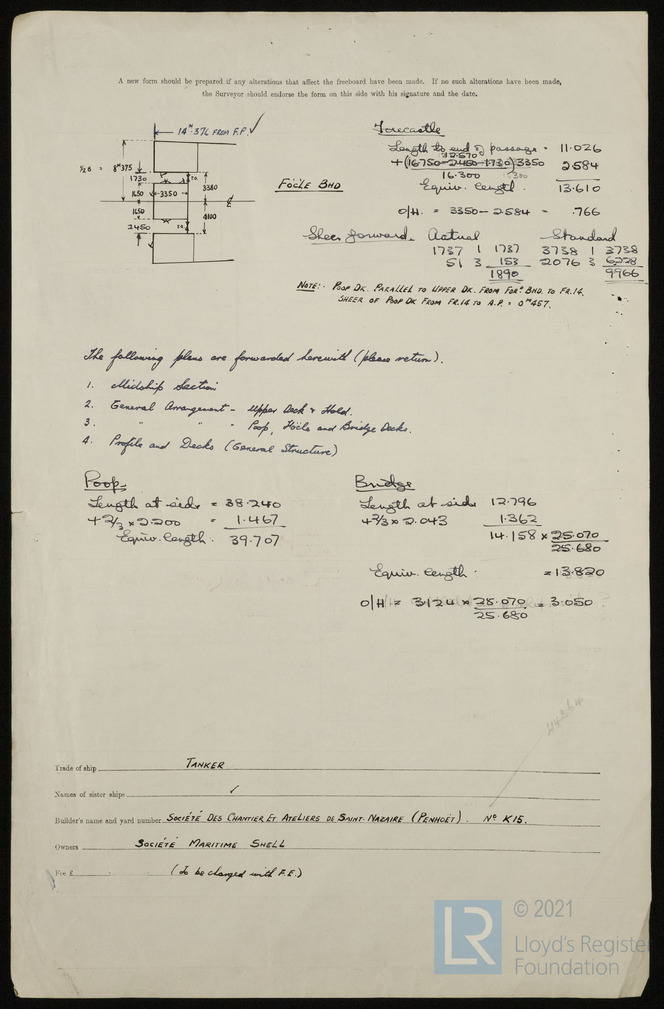 A new form should be prepared if any alterations that affect the freeboard have been made. If no such alterations have been made,
the Surveyor should endorse the form on this side with his signature and the date.
14ᴹ·376 FROM F.P. ✓
½ B = 8ᴹ375
1730
1650
3350
3380
1650
4100
2450
FOCLE BHD
Forecastle
Length to end of passage = 11.026
12.570
+(16750-2450-1730)3350 2.584
16.300
Equiv. length. 13.610
O/H. = 3350-2.584 = .766
Sheer forward. Actual Standard
1737 1 1737 3738 1 3738
51 3 153 2076 3 6228
1890 9966
NOTE:- POOP DK. PARALLEL TO UPPER DK. FROM FORᴰ BHD. TO FR.14.
SHEER OF POOP DK FROM FR.14 TO A.P. = 0ᴹ457.
The following plans are forwarded herewith (please return).
1. Midship Section
2. General Arrangement - Upper Deck & Hold.
3. " " - Poop, Focle and Bridge Decks.
4. Profile and Decks (General Structure)
Poop-
Length at side = 38.240
+ 2/3 x 2.200 = 1.467
Equiv. length. 39.707
Bridge
Length at side 12.796
+2/3 x 2.043 1.362
14.158 x 25.070
25.680
Equiv. length. = 13.820
O/H = 3.124 x 25.070 = 3.050
25.680
Trade of ship TANKER
Names of sister ships ✓
Builder's name and yard number SOCIÉTÉ DES CHANTIER ET ATELIERS DE SAINT-NAZAIRE (PENHOËT). Nº K15.
Owners SOCIÉTÉ MARITIME SHELL
Fee £ (To be charged with F.E.)
LR
© 2021
Lloyd's Register
Foundation